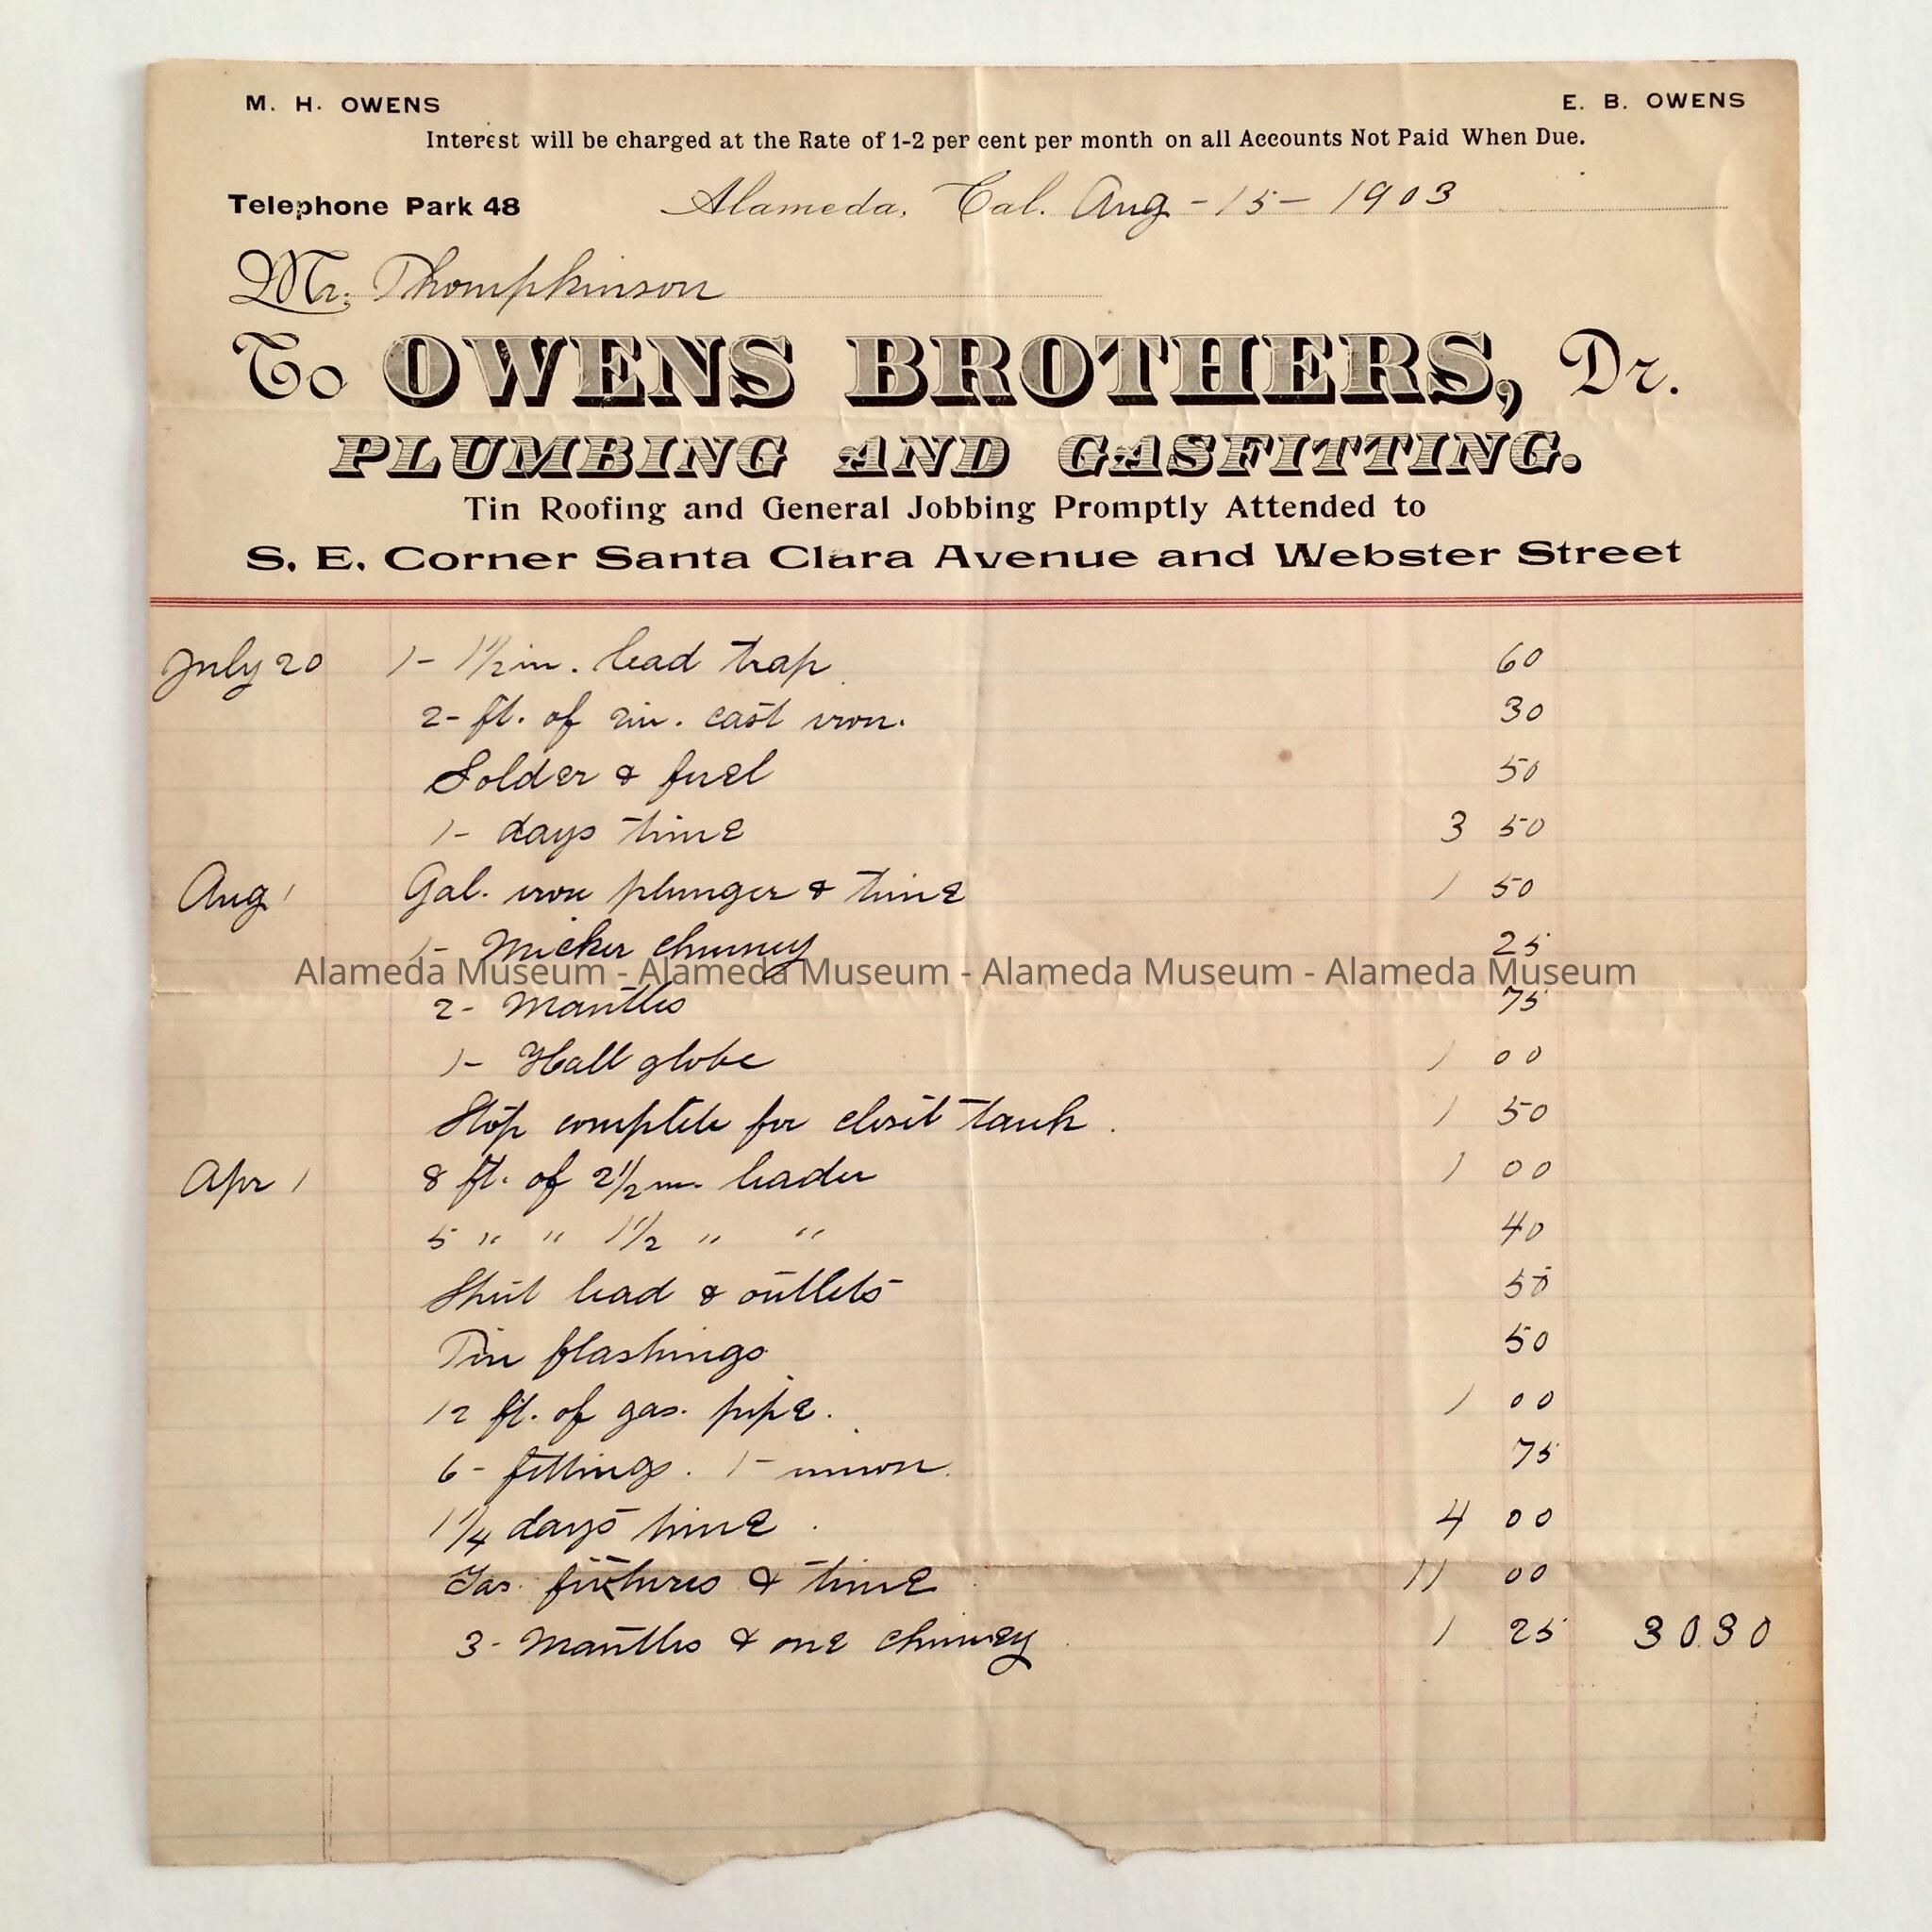 M. H. OWENS E. B. OWENS
Interest will be charged at the Rate of 1-2 per cent per month on all Accounts Not Paid When Due.
Telephone Park 48 Alameda, Cal. Aug - 15 - 1903
Mr. Thompkinson
To OWENS BROTHERS, Dr.
PLUMBING AND GASFITTING.
Tin Roofing and General Jobbing Promptly Attended to
S. E. Corner Santa Clara Avenue and Webster Street
July 20 1- 1 1/2 in. lead trap 60
2- ft. of 2in. cast iron. 30
Solder & fuel 50
1- days time 3 50
Aug 1 Gal. iron plunger & time 1 50
1- Micker chimney 25
Alameda Museum - Alameda Museum - Alameda Museum - Alameda Museum
2- Mantles 75
1- Hall globe 1 00
Stop complete for closit tank. 1 50
Apr 1 8 ft. of 2 1/2 in. leader 1 00
5 " " 1 1/2 " " 40
Shut lead & outlets 50
Tin flashings 50
12 ft. of gas. pipe. 1 00
6- fittings. 1- union. 75
1 1/4 days time. 4 00
Gas. fixtures & time 11 00
3- Mantles & one chimney 1 25 30.30